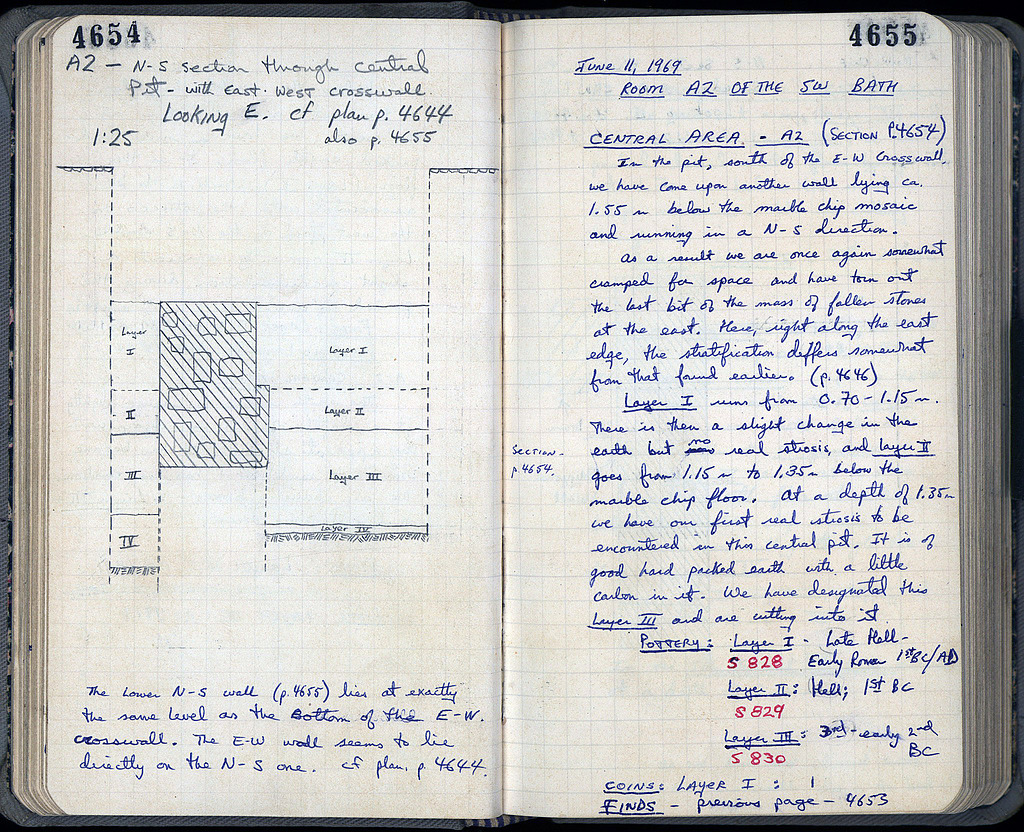 4654
A2 - N-S section through central
Pit - with East-West crosswall.
Looking E. cf plan p. 4644
1:25 also p. 4655
Layer I
Layer I
II
Layer II
III
Layer III
IV
Layer IV
The lower N-S wall (p. 4655) lies at exactly
the same level as the bottom of the E-W.
crosswall. The E-W wall seems to lie
directly on the N-S one. cf plan. p. 4644.
4655
June 11, 1969
ROOM A2 OF THE SW BATH
CENTRAL AREA - A2 (SECTION P.4654)
In the pit, south of the E-W crosswall,
we have come upon another wall lying ca.
1.55 m below the marble chip mosaic
and running in a N-S direction.
As a result we are once again somewhat
cramped for space and have torn out
the last bit of the mass of fallen stones
at the east. Here, right along the east
edge, the stratification differs somewhat
from that found earlier. (p. 4646)
Layer I runs from 0.70-1.15 m.
There is then a slight change in the
earth but no real strosis, and layer II
SECTION -
p. 4654.
goes from 1.15 m to 1.35 m below the
marble chip floor. At a depth of 1.35 m
we have our first real strosis to be
encountered in this central pit. It is of
good hard packed earth with a little
carbon in it. We have designated this
Layer III and are cutting into it.
POTTERY: Layer I - Late Hell-
S 828 Early Roman 1st BC/AD
Layer II: Hell; 1st BC
S 829
Layer III: 3rd - early 2nd
S 830 BC
COINS: LAYER I : 1
FINDS - previous page - 4653